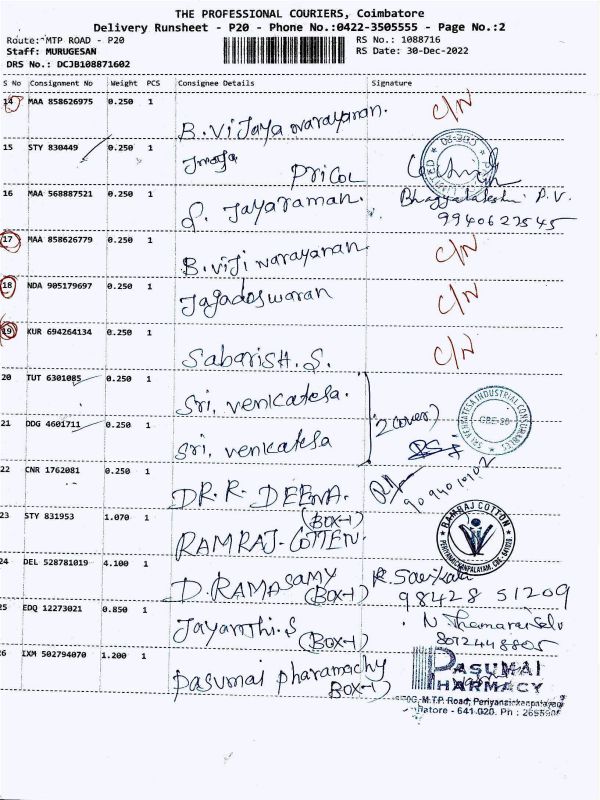 THE PROFESSIONAL COURIERS, Coimbatore
Delivery Runsheet - P20 - Phone No.:0422-3505555 - Page No.:2
Route: MTP ROAD - P20
RS No.: 1088716
Staff: MURUGESAN
RS Date: 30-Dec-2022
DRS No.: DCJB108871602
S No Consignment No Weight PCS Consignee Details Signature
14 MAA 858626975 0.250 1 B. Vijaya Narayanan. C/N
15 STY 830449 0.250 1 PRICOL
16 MAA 568887521 0.250 1 S. Jayaraman. P.V.
9940627545
17 MAA 858626779 0.250 1 B. Viji Narayanan C/N
18 NDA 905179697 0.250 1 Jagadeswaran C/N
19 KUR 694264134 0.250 1 Sabarish. S. C/N
20 TUT 6301085 0.250 1 Sri. Venkatesa.
2 Cover)
SRI VENKATESA INDUSTRIAL CONSUMABLES
CBE-20
21 DDG 4601711 0.250 1 Sri. Venkatesa
22 CNR 1762081 0.250 1 DR. R. DEENA.
23 STY 831953 1.070 1 (BOX-1)
RAMRAJ-COTTEN.
RAMRAJ COTTON
24 DEL 528781019 4.100 1 D. RAMASAMY
(BOX-1)
98428 51209
25 EDQ 12273021 0.850 1 Jayanthi. S
(BOX-1)
N. Thamarai Selvi
8072448805
26 IXM 502794070 1.200 1 Pasumai Pharamachy
BOX-1)
PASUMAI
PHARMACY
M.T.P. Road, Periyanaickenpalayam
641 020. Ph :